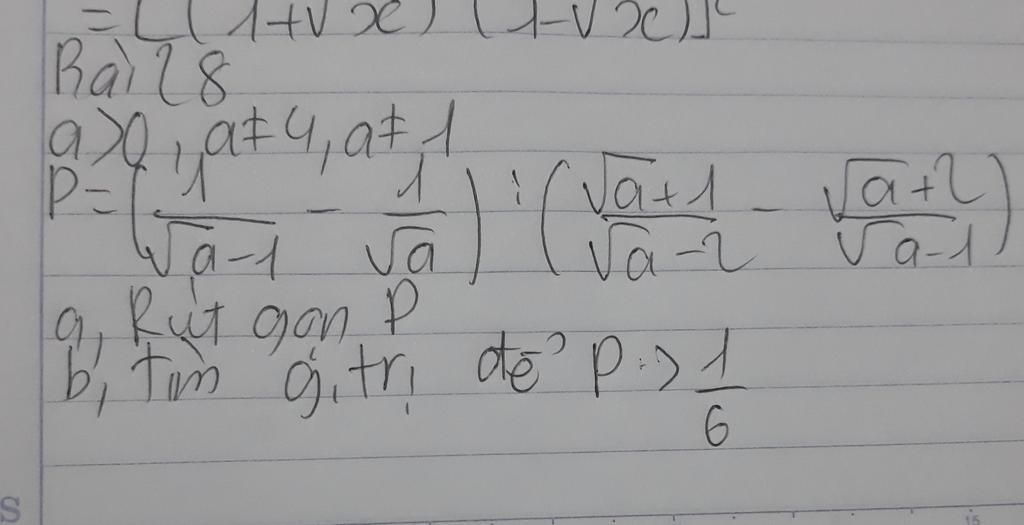 = [(1+√x) (1-√x)]²
Bài 28
a>0, a≠4, a≠1
P=(1/(√a-1) - 1/√a) : ((√a+1)/(√a-2) - (√a+2)/(√a-1))
a, Rút gọn P
b, tìm g.trị để P > 1/6
S
15